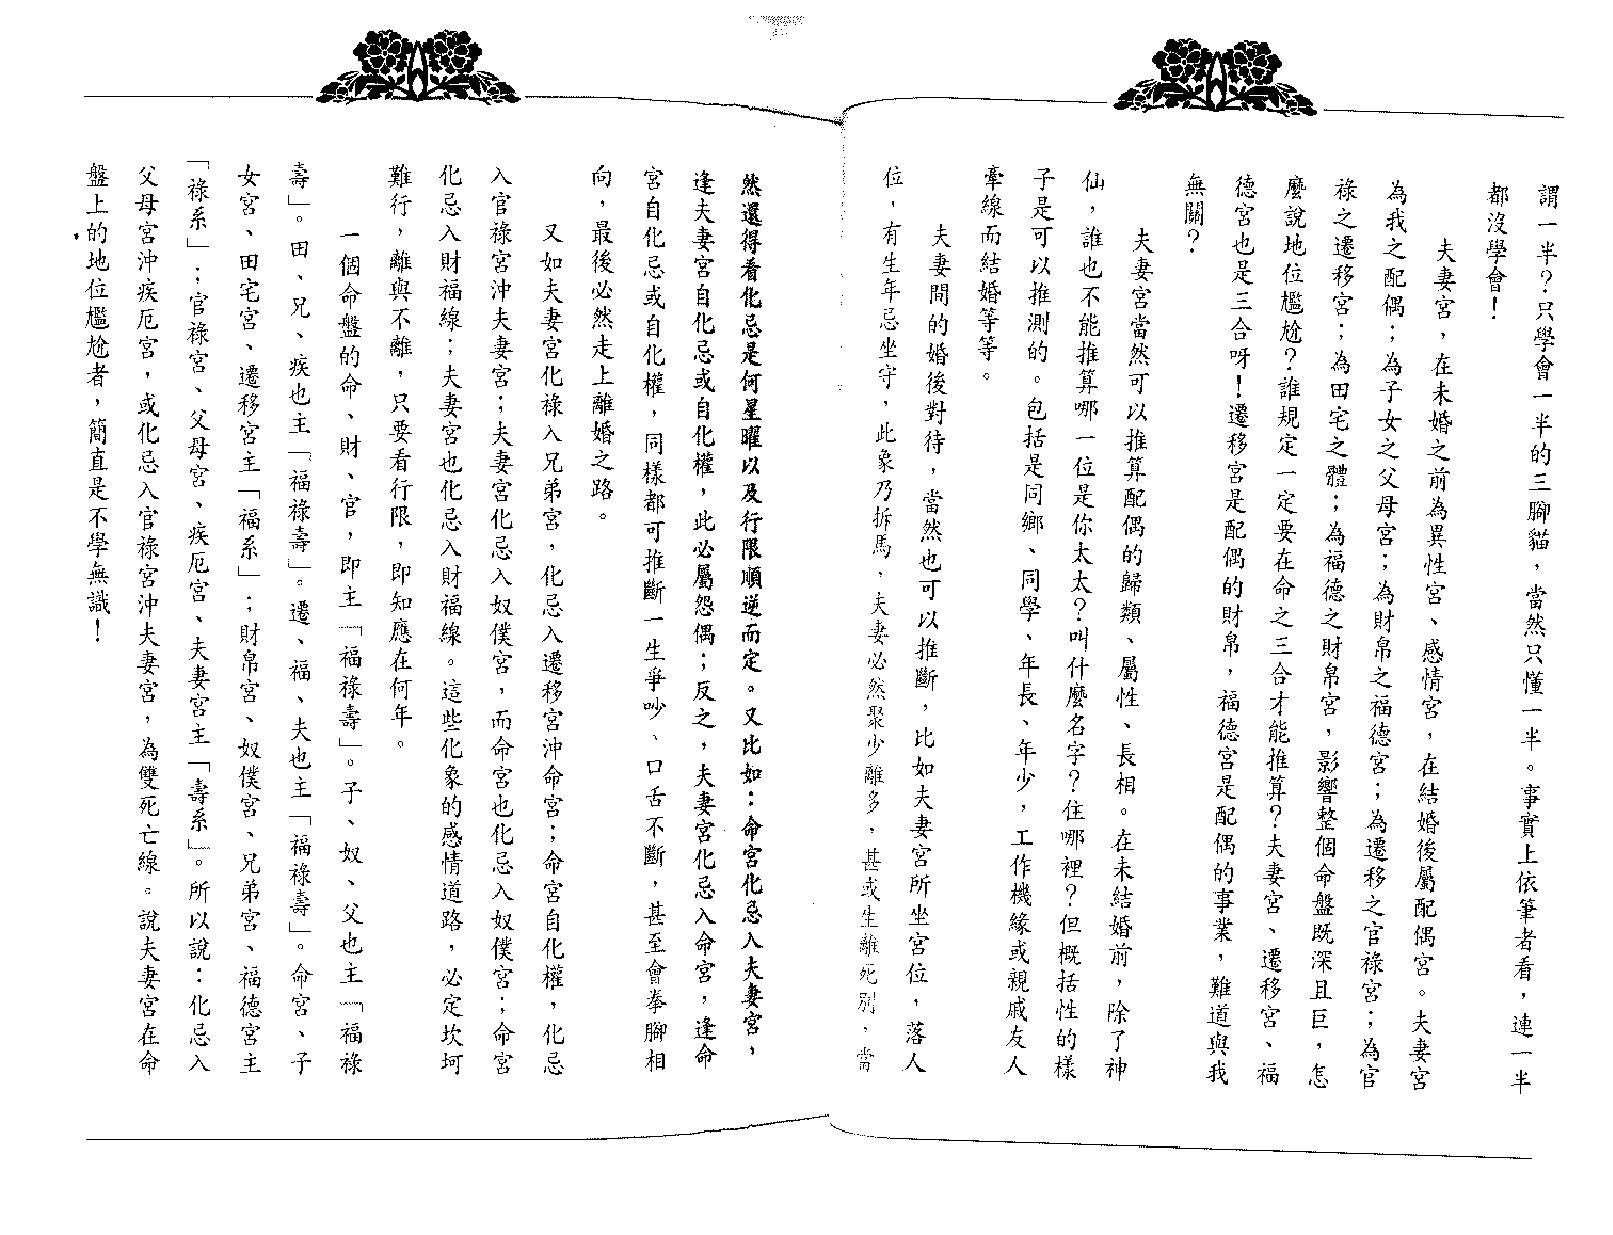 謂一半？只學會一半的三腳貓，當然只懂一半。事實上依筆者看，連一半
都沒學會！
夫妻宮，在未婚之前為異性宮、感情宮，在結婚後屬配偶宮。夫妻宮
為我之配偶；為子女之父母宮；為財帛之福德宮；為遷移之官祿宮；為官
祿之遷移宮；為田宅之體；為福德之財帛宮，影響整個命盤既深且巨，怎
麼說地位尷尬？誰規定一定要在命之三合才能推算？夫妻宮、遷移宮、福
德宮也是三合呀！遷移宮是配偶的財帛，福德宮是配偶的事業，難道與我
無關？
夫妻宮當然可以推算配偶的歸類、屬性、長相。在未結婚前，除了神
仙，誰也不能推算哪一位是你太太？叫什麼名字？住哪裡？但概括性的樣
子是可以推測的。包括是同鄉、同學、年長、年少，工作機緣或親戚友人
牽線而結婚等等。
夫妻間的婚後對待，當然也可以推斷，比如夫妻宮所坐宮位，落人
位，有生年忌坐守，此象乃拆馬，夫妻必然聚少離多，甚或生離死別，當
然還得看化忌是何星曜以及行限順逆而定。又比如：命宮化忌入夫妻宮，
逢夫妻宮自化忌或自化權，此必屬怨偶；反之，夫妻宮化忌入命宮，逢命
宮自化忌或自化權，同樣都可推斷一生爭吵、口舌不斷，甚至會拳腳相
向，最後必然走上離婚之路。
又如夫妻宮化祿入兄弟宮，化忌入遷移宮沖命宮；命宮自化權，化忌
入官祿宮沖夫妻宮；夫妻宮化忌入奴僕宮，而命宮也化忌入奴僕宮；命宮
化忌入財福線；夫妻宮也化忌入財福線。這些化象的感情道路，必定坎坷
難行，離與不離，只要看行限，即知應在何年。
一個命盤的命、財、官，即主「福祿壽」。子、奴、父也主「福祿
壽」。田、兄、疾也主「福祿壽」。遷、福、夫也主「福祿壽」。命宮、子
女宮、田宅宮、遷移宮主「福系」；財帛宮、奴僕宮、兄弟宮、福德宮主
「祿系」；官祿宮、父母宮、疾厄宮、夫妻宮主「壽系」。所以說：化忌入
父母宮沖疾厄宮，或化忌入官祿宮沖夫妻宮，為雙死亡線。說夫妻宮在命
盤上的地位尷尬者，簡直是不學無識！